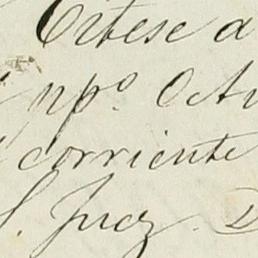 Citese a
np° Octu
corriente
S. Juez. D